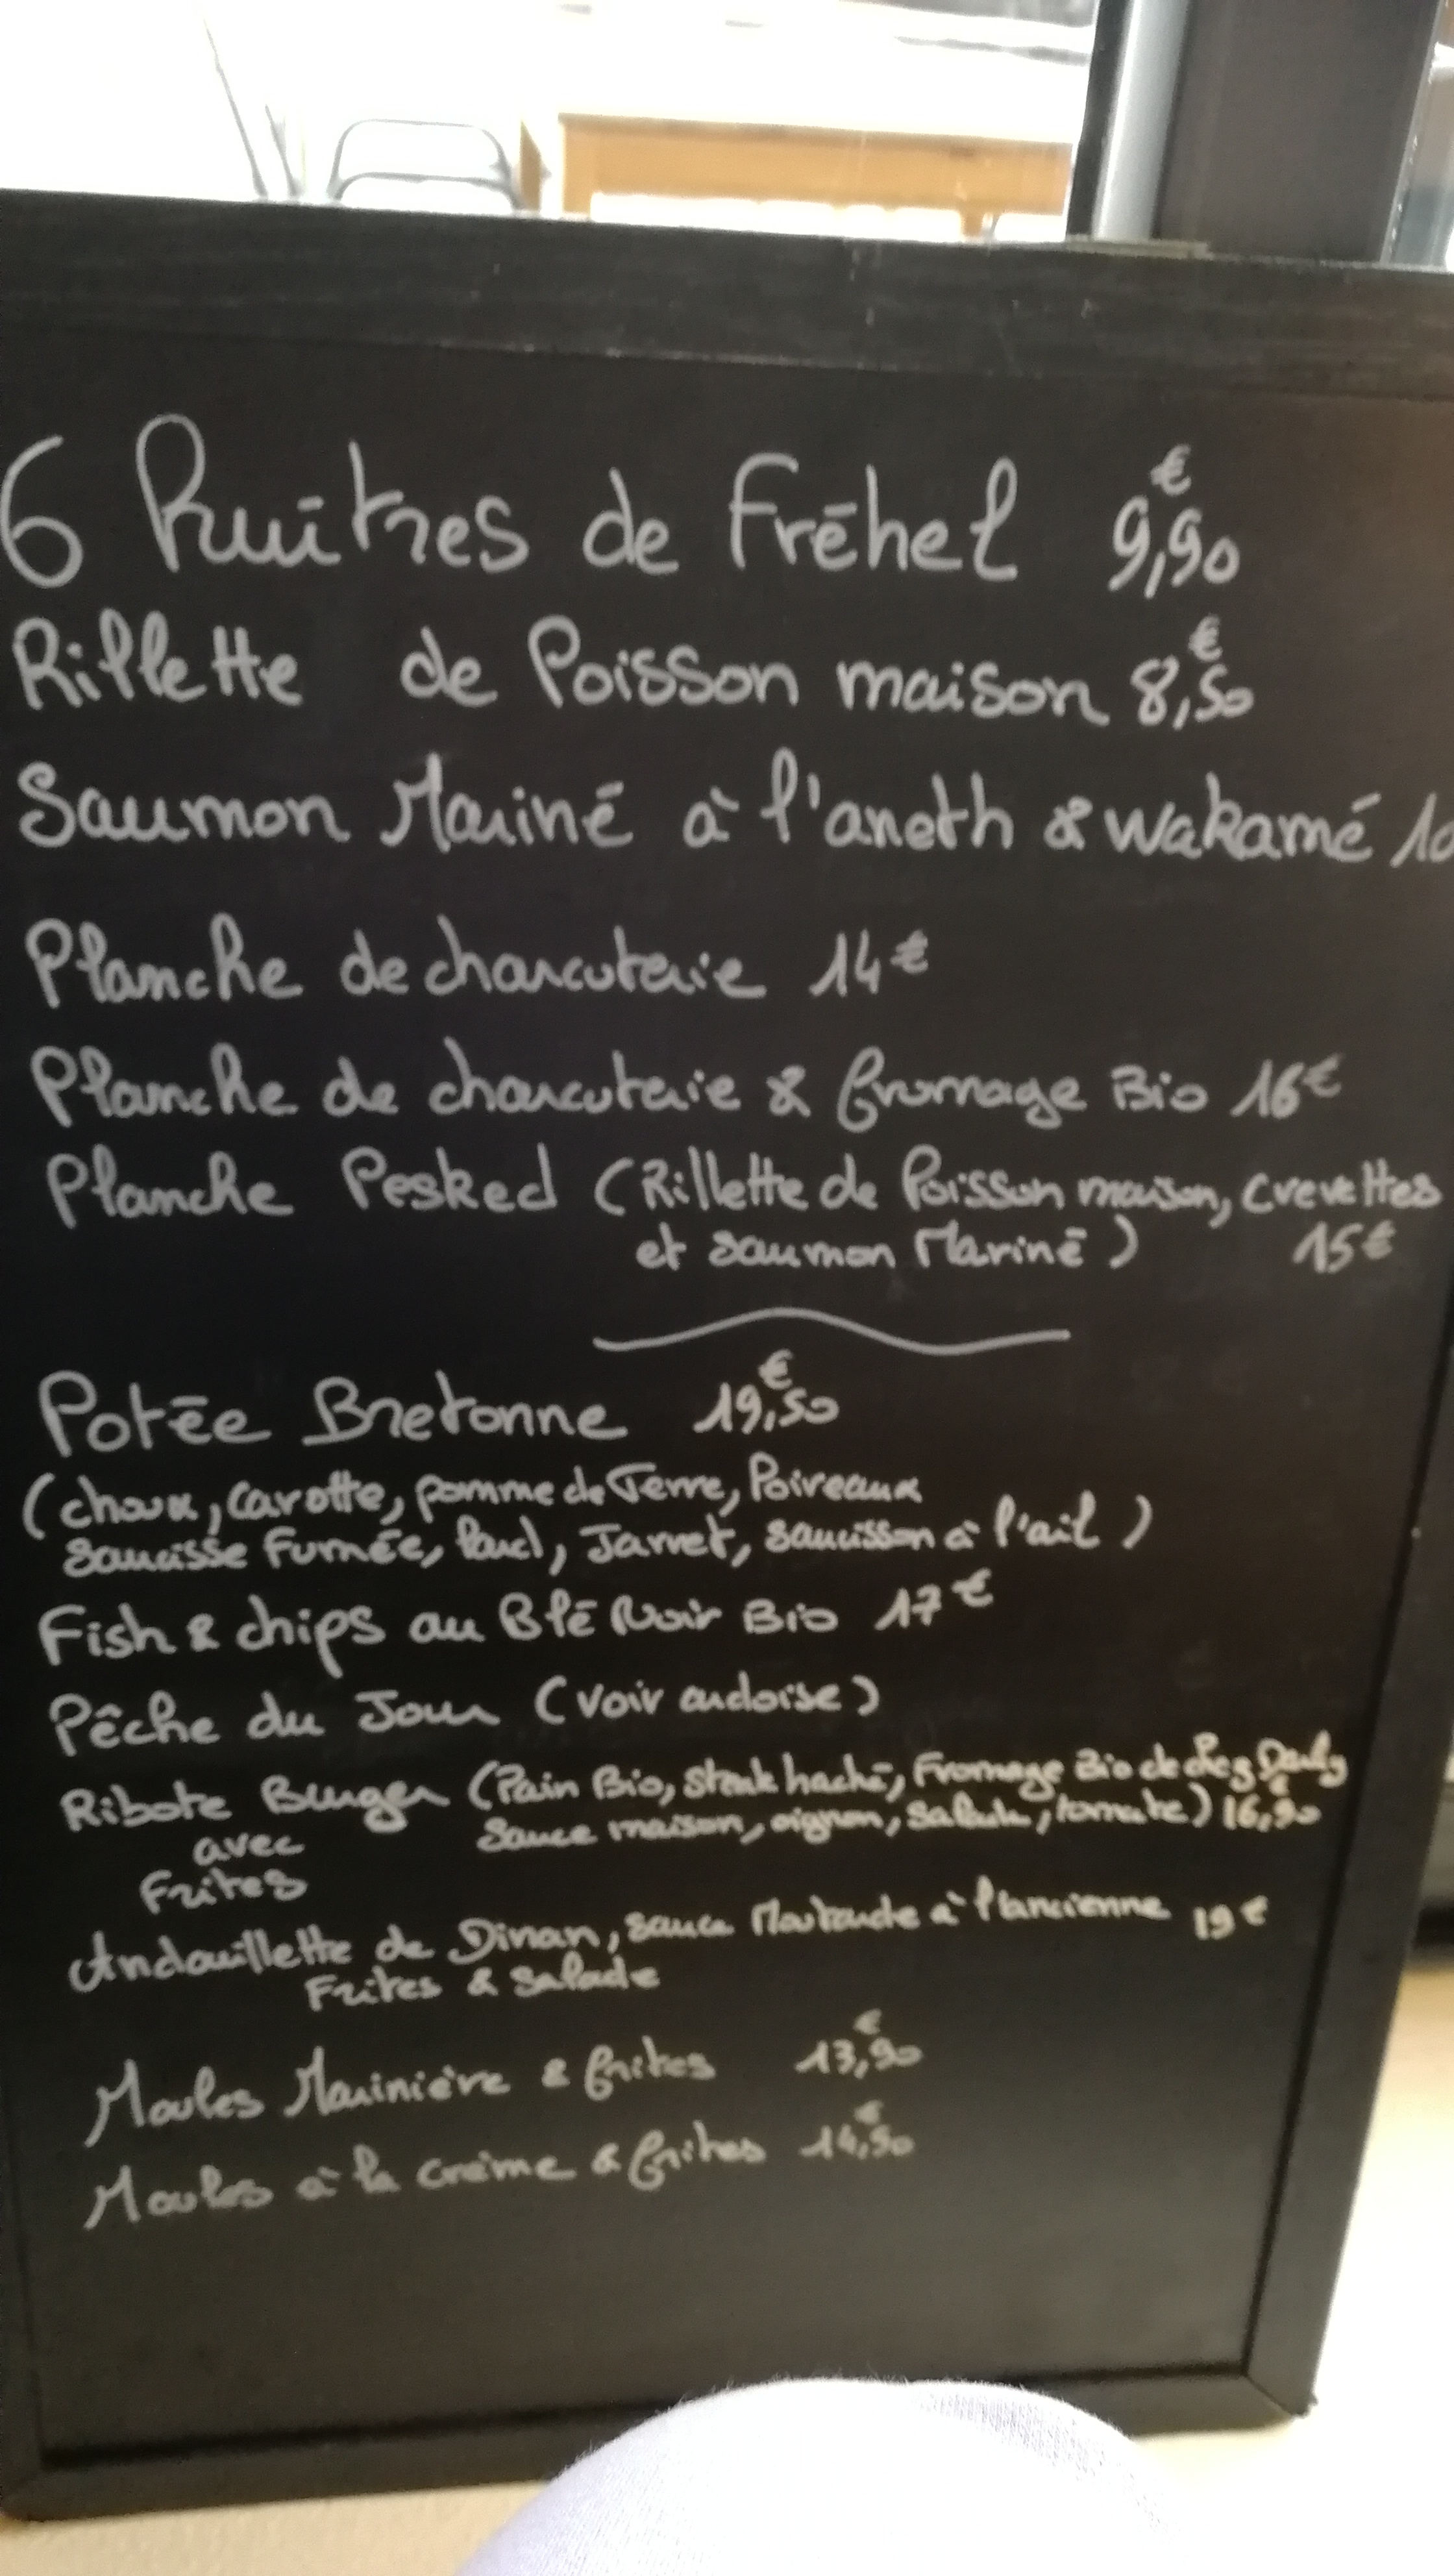 6 Huîtres de Fréhel 9,90€
Rillette de Poisson maison 8,50€
Saumon Mariné à l'aneth & Wakamé 10
Planche de charcuterie 14€
Planche de charcuterie & fromage Bio 16€
Planche Pesked (Rillette de Poisson maison, crevettes
et saumon Mariné) 15€
Potée Bretonne 19,50€
(choux, carotte, pomme de Terre, Poireaux
saucisse Fumée, Lard, Jarret, saucisson à l'ail)
Fish & chips au Blé Noir Bio 17€
Pêche du Jour (voir ardoise)
Ribote Burger (Pain Bio, steak haché, Fromage Bio de
avec
sauce maison, oignon, salade, tomate) 16,90€
Frites
Andouillette de Dinan, sauce Moutarde à l'ancienne 19€
Frites & salade
Moules Marinière & frites 13,90€
Moules à la crème & frites 14,90€